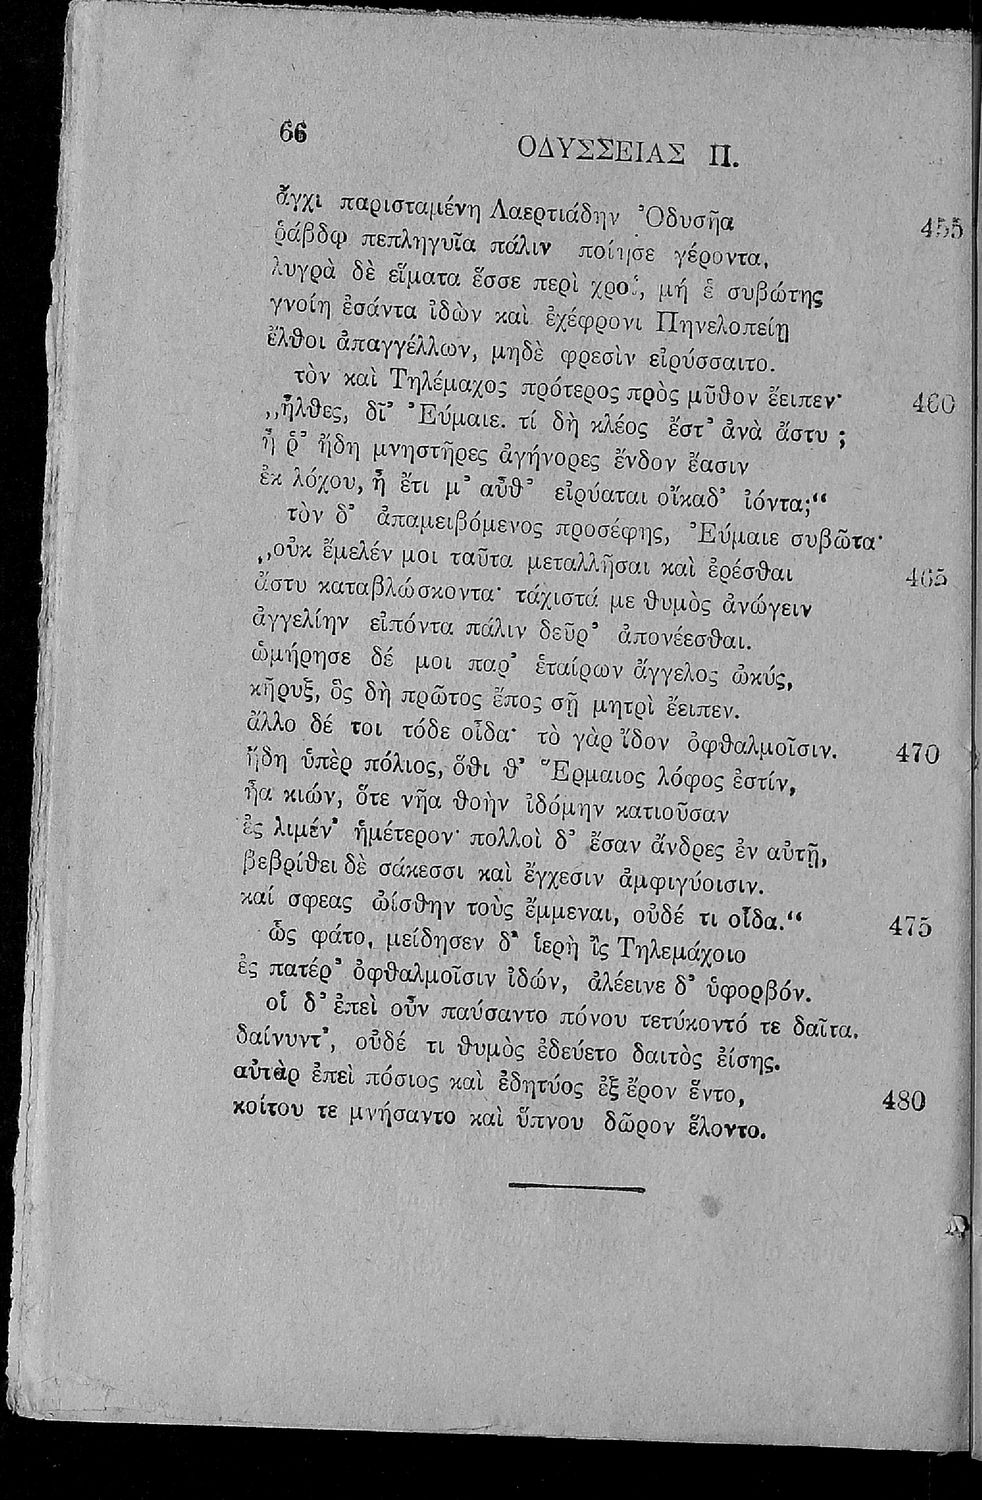 66
ΟΔΥΣΣΕΙΑΣ Π.
ἄγχι παρισταμένη Λαερτιάδην Ὀδυσῆα 455
ῥάβδῳ πεπληγυῖα πάλιν ποίησε γέροντα,
λυγρὰ δὲ εἵματα ἕσσε περὶ χροΐ, μή ἑ συβώτης
γνοίη ἐσάντα ἰδὼν καὶ ἐχέφρονι Πηνελοπείῃ
ἔλθοι ἀπαγγέλλων, μηδὲ φρεσὶν εἰρύσσαιτο.
τὸν καὶ Τηλέμαχος πρότερος πρὸς μῦθον ἔειπεν· 460
„ἦλθες, δῖ’ Ἐύμαιε. τί δὴ κλέος ἔστ’ ἀνὰ ἄστυ ;
ἦ ῥ’ ἤδη μνηστῆρες ἀγήνορες ἔνδον ἔασιν
ἐκ λόχου, ἦ ἔτι μ’ αὖθ’ εἰρύαται οἴκαδ’ ἰόντα;“
τὸν δ’ ἀπαμειβόμενος προσέφης, Ἐύμαιε συβῶτα·
„οὐκ ἔμελέν μοι ταῦτα μεταλλῆσαι καὶ ἐρέσθαι 465
ἄστυ καταβλώσκοντα· τάχιστά με θυμὸς ἀνώγειν
ἀγγελίην εἰπόντα πάλιν δεῦρ’ ἀπονέεσθαι.
ὡμήρησε δέ μοι παρ’ ἑταίρων ἄγγελος ὠκύς,
κῆρυξ, ὃς δὴ πρῶτος ἔπος σῇ μητρὶ ἔειπεν.
ἄλλο δέ τοι τόδε οἶδα· τὸ γὰρ ἴδον ὀφθαλμοῖσιν. 470
ἤδη ὑπὲρ πόλιος, ὅθι θ’ Ἕρμαιος λόφος ἐστίν,
ἦα κιών, ὅτε νῆα θοὴν ἰδόμην κατιοῦσαν
ἐς λιμέν’ ἡμέτερον· πολλοὶ δ’ ἔσαν ἄνδρες ἐν αὐτῇ,
βεβρίθει δὲ σάκεσσι καὶ ἔγχεσιν ἀμφιγύοισιν.
καί σφεας ὠίσθην τοὺς ἔμμεναι, οὐδέ τι οἶδα.“ 475
ὣς φάτο, μείδησεν δ’ ἱερὴ ἲς Τηλεμάχοιο
ἐς πατέρ’ ὀφθαλμοῖσιν ἰδών, ἀλέεινε δ’ ὑφορβόν.
οἱ δ’ ἐπεὶ οὖν παύσαντο πόνου τετύκοντό τε δαῖτα.
δαίνυντ’, οὐδέ τι θυμὸς ἐδεύετο δαιτὸς ἐίσης.
αὐτὰρ ἐπεὶ πόσιος καὶ ἐδητύος ἐξ ἔρον ἕντο, 480
κοίτου τε μνήσαντο καὶ ὕπνου δῶρον ἕλοντο.